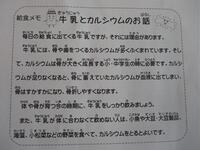 給食メモ 牛乳とカルシウムのお話
毎日の給食に出てくる牛乳ですが、それには理由があります。
牛乳には、骨や歯をつくるカルシウムが多くふくまれています。そし
て、カルシウムは骨が大きく成長する小・中学生の時に必要です。カルシ
ウムが足りなくなると、骨に蓄えられているカルシウムが使われるた
め、骨はもろく、折れやすくなります。
体や骨が育つ今の時期に、牛乳をしっかり飲みましょう。
また、牛乳が体に合わなくて飲めない人は、小魚や大豆・大豆製品、
海藻、小松菜などの野菜を食べて、カルシウムをとるとよいです。